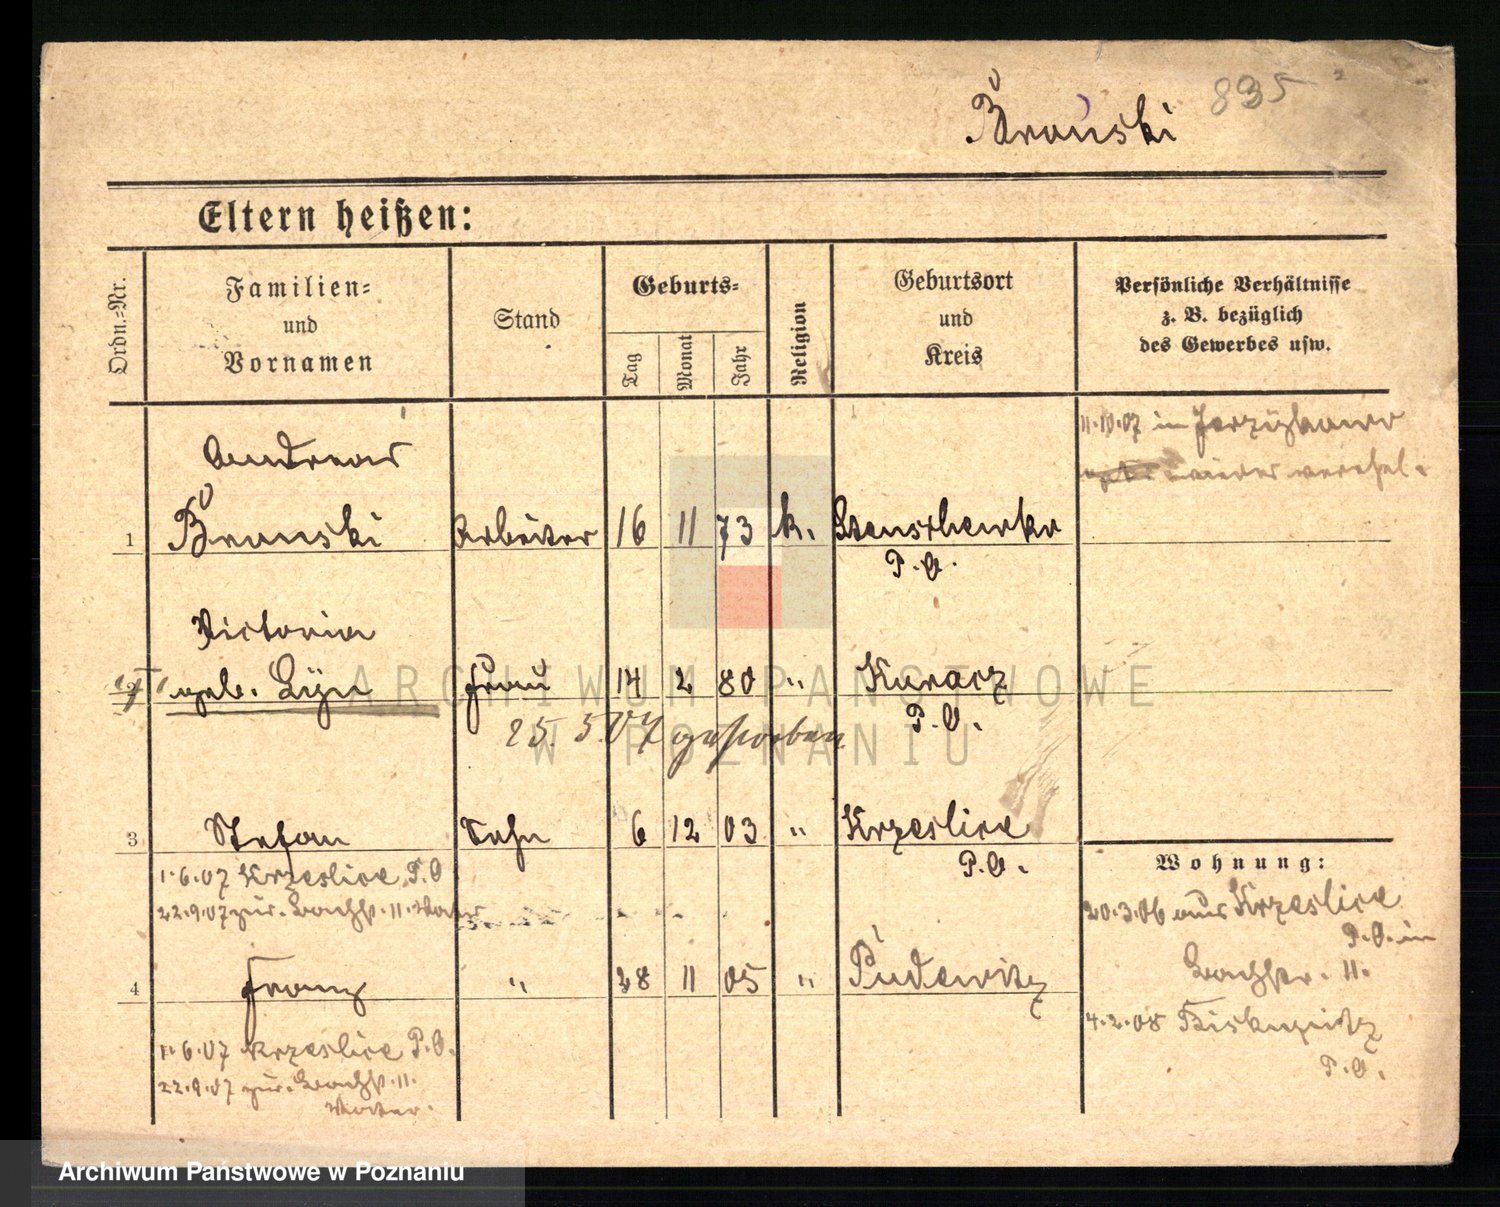 835
Bronski
Eltern heißen:
Ordn.-Nr.
Familien-
und
Vornamen
Stand
Geburts-
Tag
Monat
Jahr
Religion
Geburtsort
und
Kreis
Persönliche Verhältnisse
z. B. bezüglich
des Gewerbes usw.
11.10.07 in
wieder verehel.
Andreas
1 Bronski Arbeiter 16 11 73 k.
P.O.
Victoria
geb. Frau 14 2 80 " Karacz
P.O.
25. 5. 07 gestorben
ARCHIWUM PAŃSTWOWE
W POZNANIU
3 Stefan Sohn 6 12 03 " Krzeslice
P.O.
1.6.07 Krzeslice P.O
22.9.07 zur. 11. Vater
Wohnung:
20.3.06 aus Krzeslice
P.O. in
11.
4 Franz " 28 11 05 " Pudewitz
4.2.08 Biskupitz
P.O.
1.6.07 Krzeslice P.O.
22.9.07 zur. 11.
Vater.
Archiwum Państwowe w Poznaniu